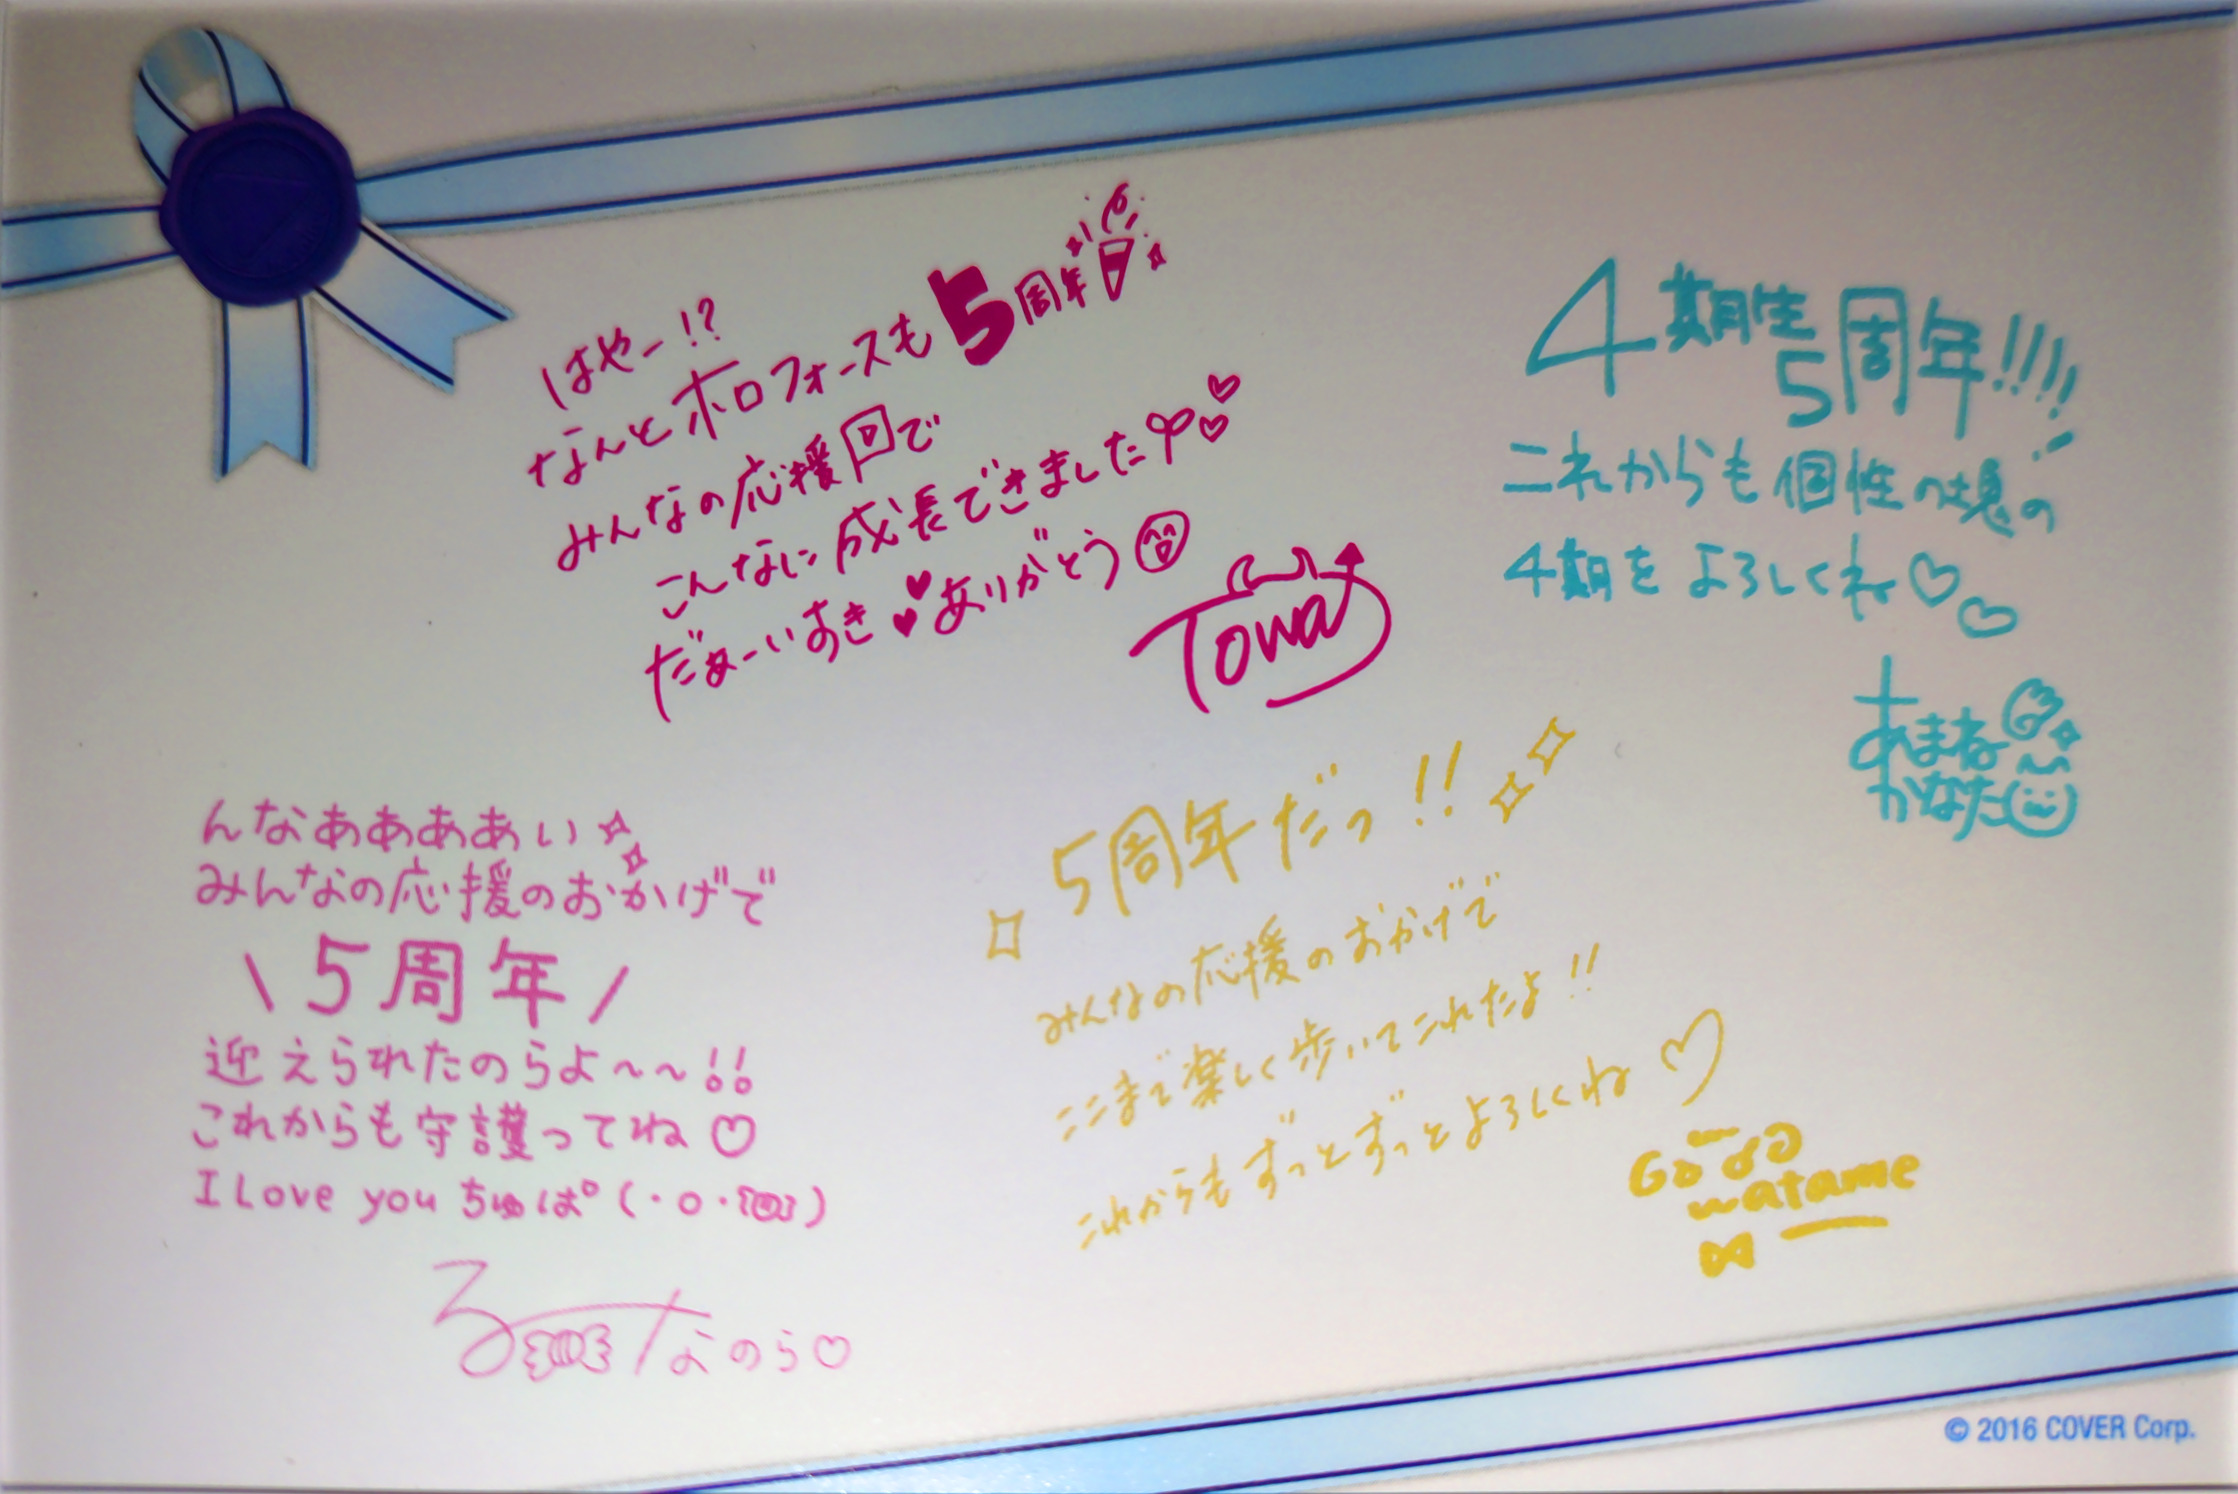 はやー!?
なんとホロフォースも5周年
みんなの応援回で
こんなに成長できました♡♡
だぁーいすき♥♥ありがとう
Towa
4期生
5周年!!!!
これからも個性の塊の
4期をよろしくね♡♡
あまね
かなた
んなぁぁぁぁい
みんなの応援のおかげで
\5周年/
迎えられたのらよ~~!!
これからも守護ってね♡
I Love you ちゅぱ°(・o・🍬)
るーなのら♡
5周年だっ!!
みんなの応援のおかげで
ここまで楽しく歩いてこれたよ!!
これからもずっとずっとよろしくね♡
watame
© 2016 COVER Corp.